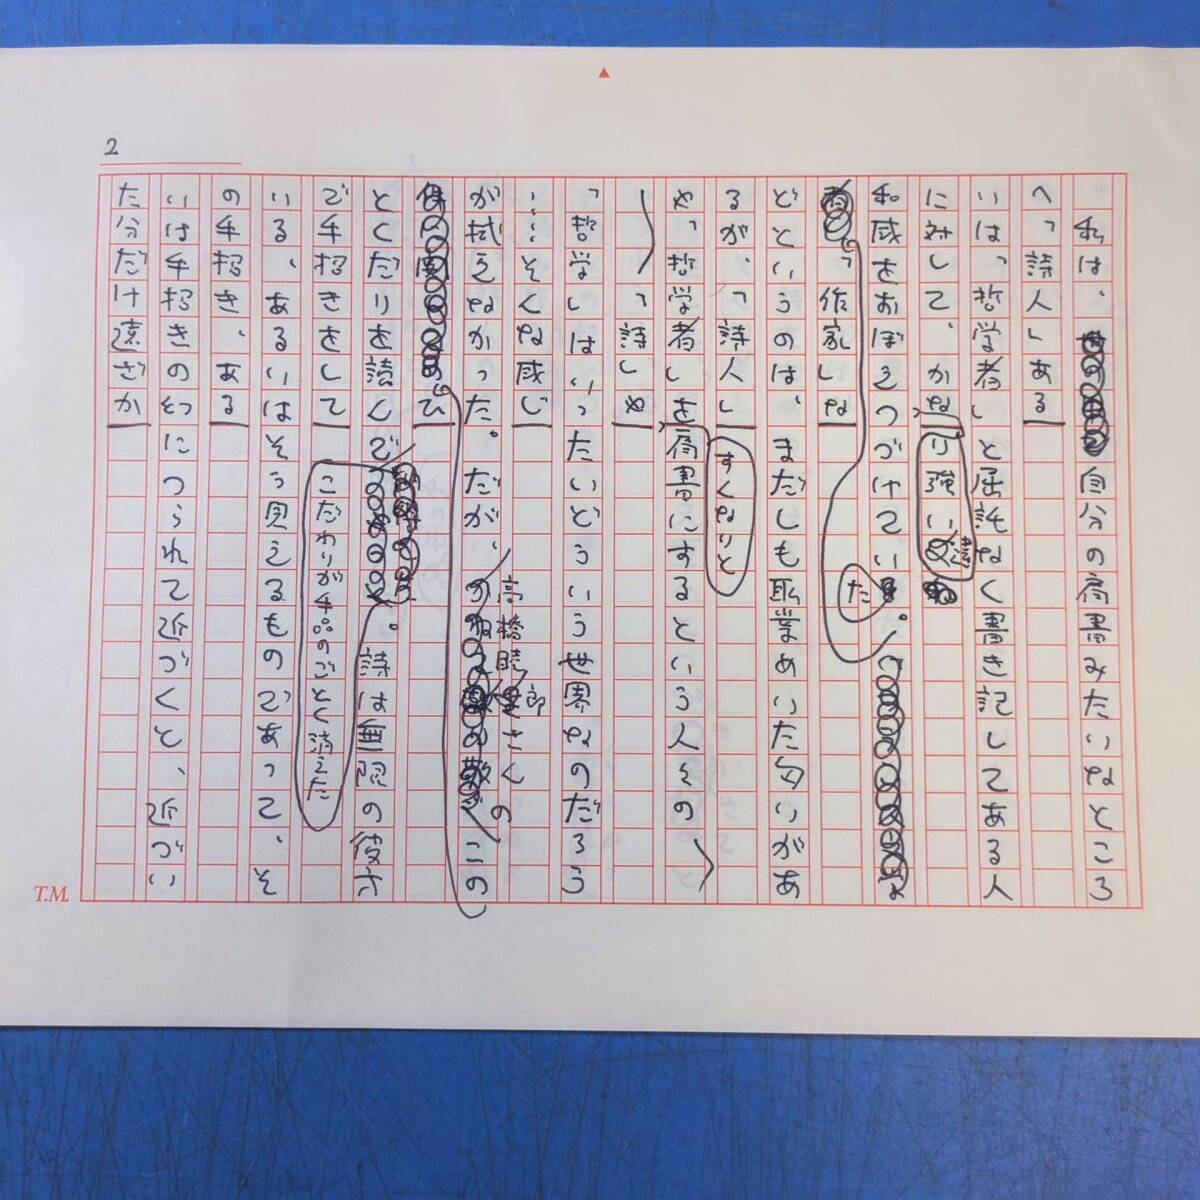 2
私は、自分の肩書みたいなところ
へ「詩人」ある
いは「哲学者」と屈託なく書き記してある人
に対して、かなり強い違
和感をおぼえつづけていた。
「作家」な
どというのは、まだしも職業めいた匂いがあ
るが、「詩人」
すんなりと
や「哲学者」を肩書にするという人その
「詩」や
「哲学」はいったいどういう世界なのだろう
……そんな感じ
高橋睦郎さんの
が拭えなかった。だが、この
ひ
とくだりを読んで
こだわりが手品のごとく消えた
。詩は無限の彼方
で手招きをして
いる、あるいはそう見えるものであって、そ
の手招き、ある
いは手招きの幻につられて近づくと、近づい
た分だけ遠ざか
T.M.